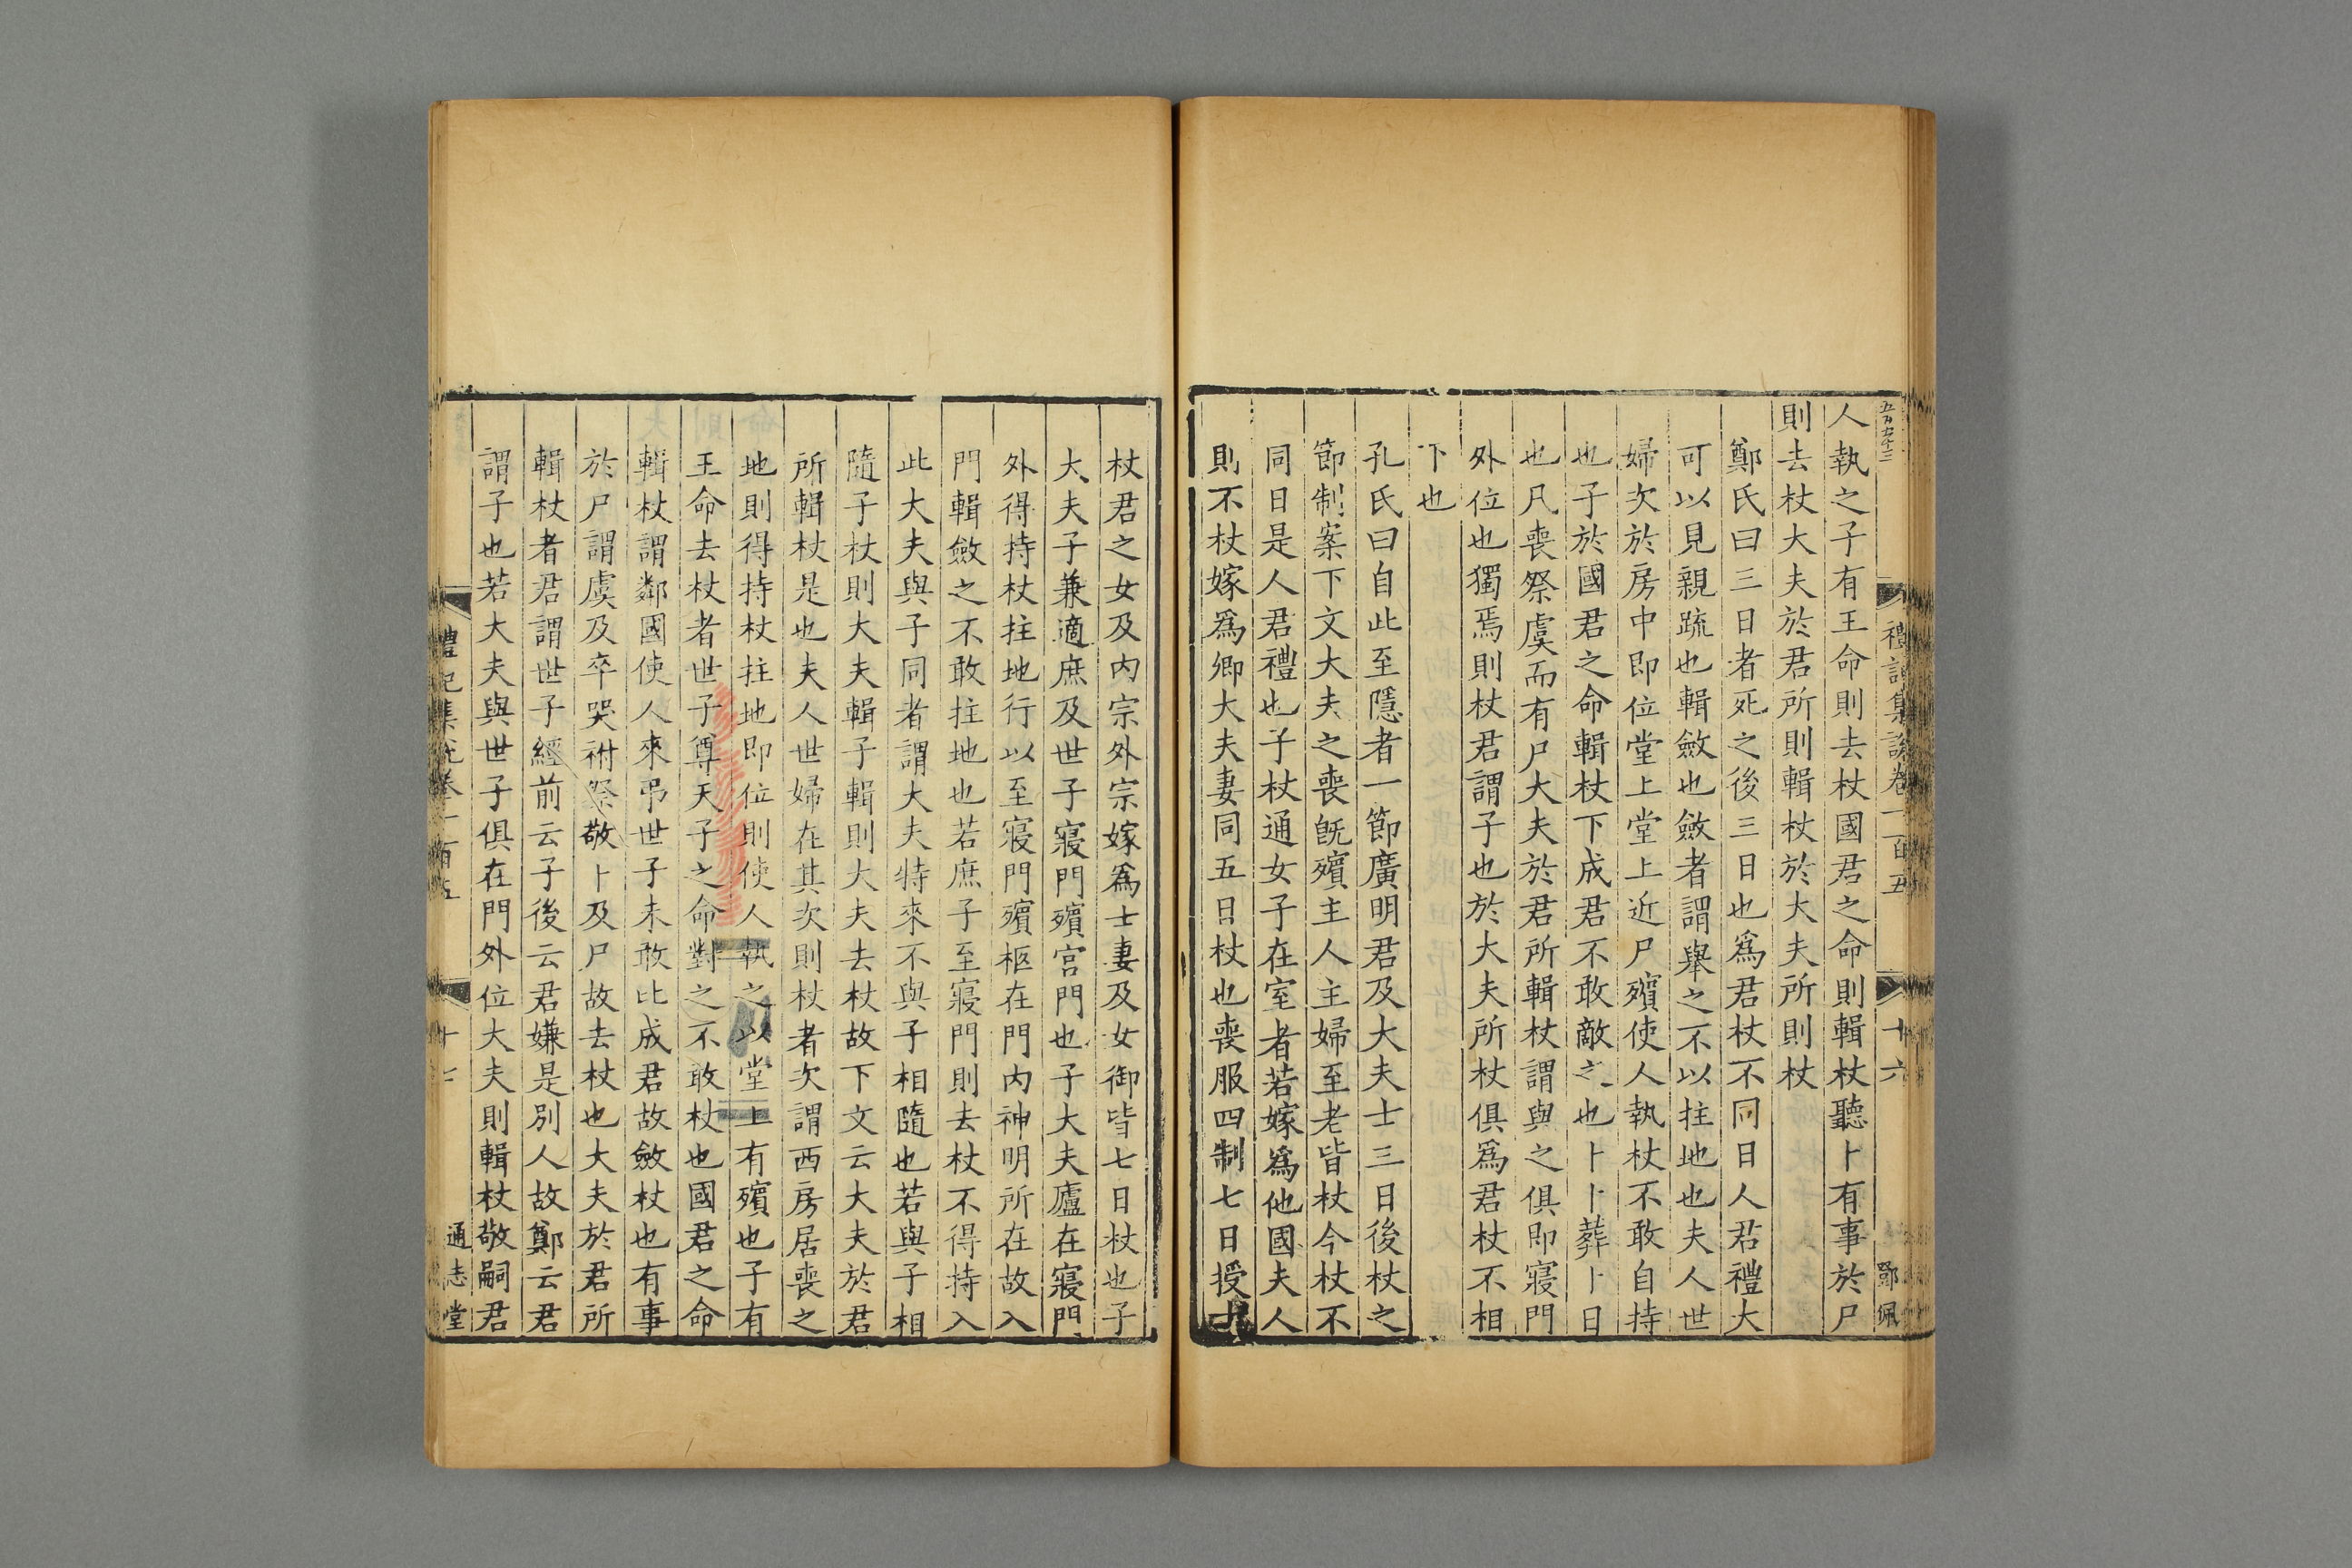 五百七十三
禮記集說卷一百五
十六
鄧佩
人執之子有王命則去杖國君之命則輯杖聽卜有事於尸
則去杖大夫於君所則輯杖於大夫所則杖
鄭氏曰三日者死之後三日也爲君杖不同日人君禮大
可以見親疏也輯斂也斂者謂舉之不以拄地也夫人世
婦次於房中即位堂上堂上近尸殯使人執杖不敢自持
也子於國君之命輯杖下成君不敢敵之也卜卜葬卜日
也凡喪祭虞而有尸大夫於君所輯杖謂與之俱即寢門
外位也獨焉則杖君謂子也於大夫所杖俱爲君杖不相
下也
孔氏曰自此至隱者一節廣明君及大夫士三日後杖之
節制案下文大夫之喪旣殯主人主婦室老皆杖今杖不
同日是人君禮也子杖通女子在室者若嫁爲他國夫人
則不杖嫁爲卿大夫妻同五日杖也喪服四制七日授士
杖君之女及內宗外宗嫁爲士妻及女御皆七日杖也子
大夫子兼適庶及世子寢門殯宮門也子大夫廬在寢門
外得持杖拄地行以至寢門殯柩在門內神明所在故入
門輯斂之不敢拄地也若庶子至寢門則去杖不得持入
此大夫與子同者謂大夫特來不與子相隨也若與子相
隨子杖則大夫輯子輯則大夫去杖故下文云大夫於君
所輯杖是也夫人世婦在其次則杖者次謂西房居喪之
地則得持杖拄地即位則使人執之以堂上有殯也子有
王命去杖者世子尊天子之命對之不敢杖也國君之命
輯杖謂鄰國使人來弔世子未敢比成君故斂杖也有事
於尸謂虞及卒哭祔祭敬卜及尸故去杖也大夫於君所
輯杖者君謂世子經前云子後云君嫌是別人故鄭云君
謂子也若大夫與世子俱在門外位大夫則輯杖敬嗣君
禮記集說卷一百五
十七
通志堂